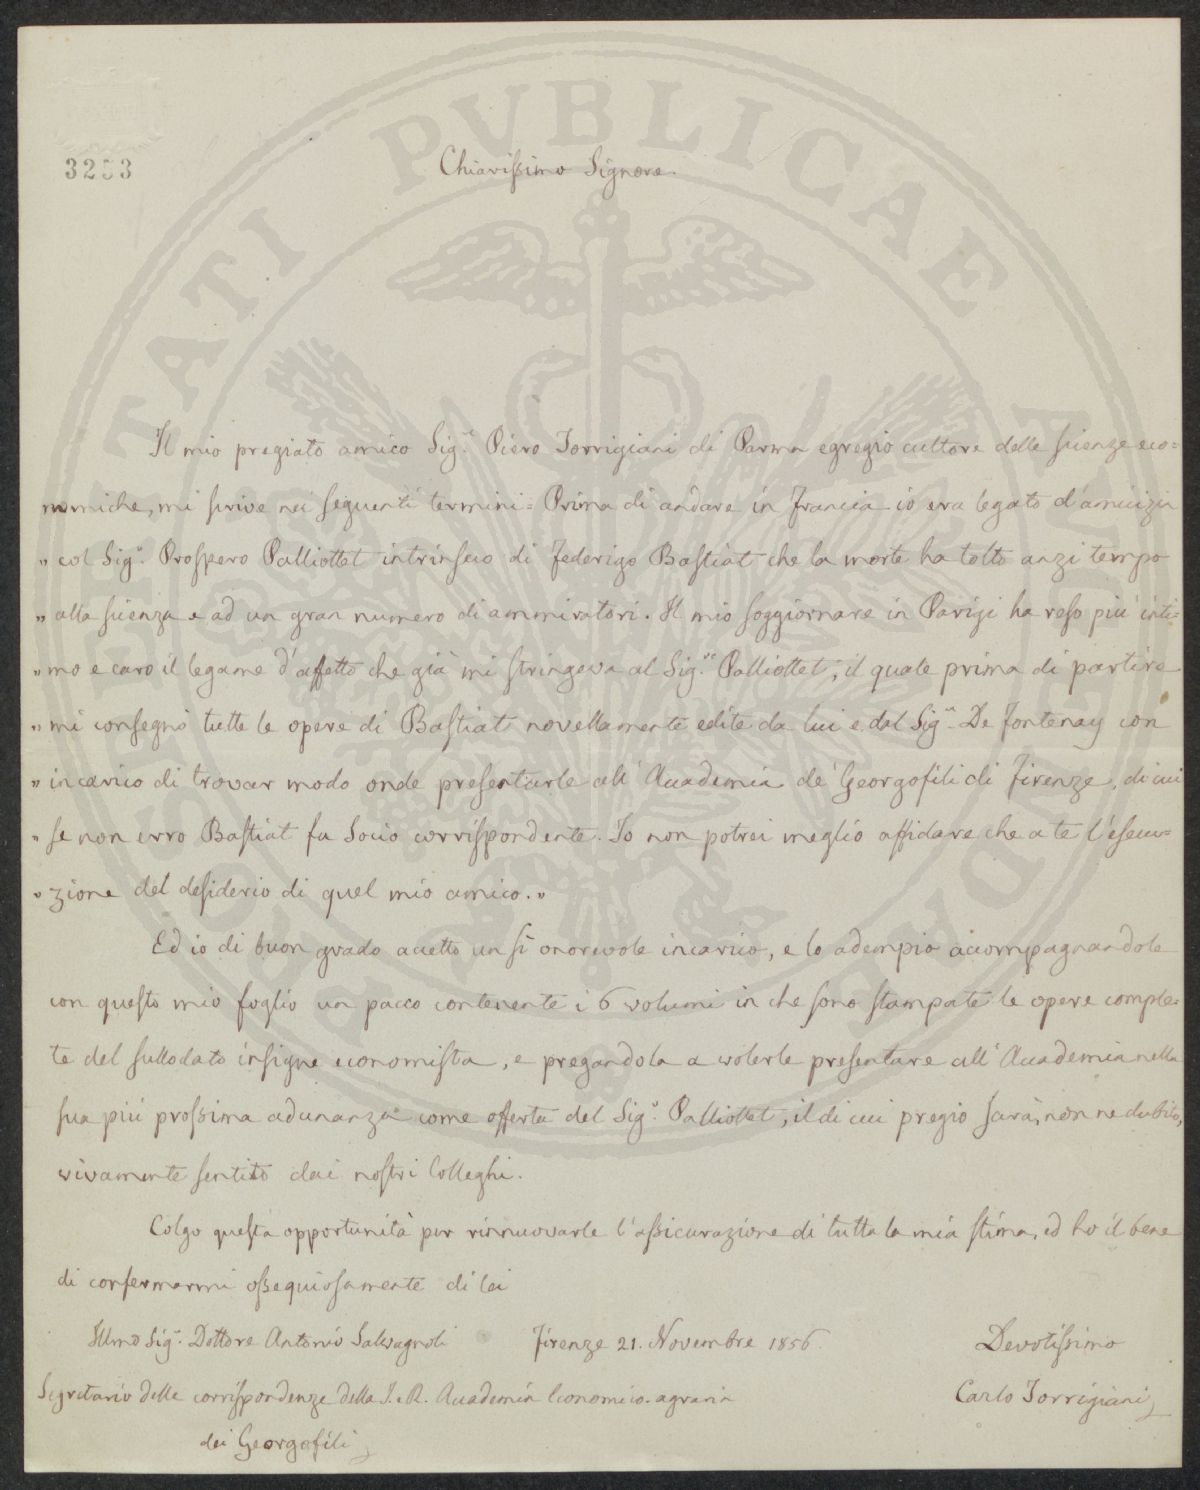 PROSPERITATI PVBLICAE AVGENDAE
3253
Chiarissimo Signore.
Il mio pregiato amico Sig.e Piero Torrigiani di Parma egregio cultore delle scienze eco=
nomiche, mi scrive nei seguenti termini = Prima di andare in Francia io era legato d'amicizia
" col Sig.r Prospero Palliottet intrinseco di Federigo Bastiat che la morte ha tolto anzi tempo
" alla scienza e ad un gran numero di ammiratori. Il mio soggiornare in Parigi ha reso più inti=
" mo e caro il legame d'affetto che già mi stringeva al Sig.re Palliottet, il quale prima di partire
" mi consegnò tutte le opere di Bastiat novellamente edite da lui e dal Sig.r De Fontenay con
" incarico di trovar modo onde presentarle all'Accademia de' Georgofili di Firenze, di cui
" se non erro Bastiat fu Socio corrispondente. Io non potrei meglio affidare che a te l'esecu=
" zione del desiderio di quel mio amico."
Ed io di buon grado accetto un sì onorevole incarico, e lo adempio accompagnandole
con questo mio foglio un pacco contenente i 6 volumi in che sono stampate le opere comple=
te del sullodato insigne economista, e pregandola a volerle presentare all'Accademia nella
sua più prossima adunanza come offerta del Sig.r Palliottet, il di cui pregio sarà, non ne dubito,
vivamente sentito dai nostri Colleghi.
Colgo questa opportunità per rinnuovarle l'assicurazione di tutta la mia stima, ed ho il bene
di confermarmi ossequiosamente di lei
Illmo Sig.r Dottore Antonio Salvagnoli Firenze 21. Novembre 1856 Devotissimo
Segretario delle corrispondenze della I. e R. Accademia Economico-agraria Carlo Torrigiani
dei Georgofili